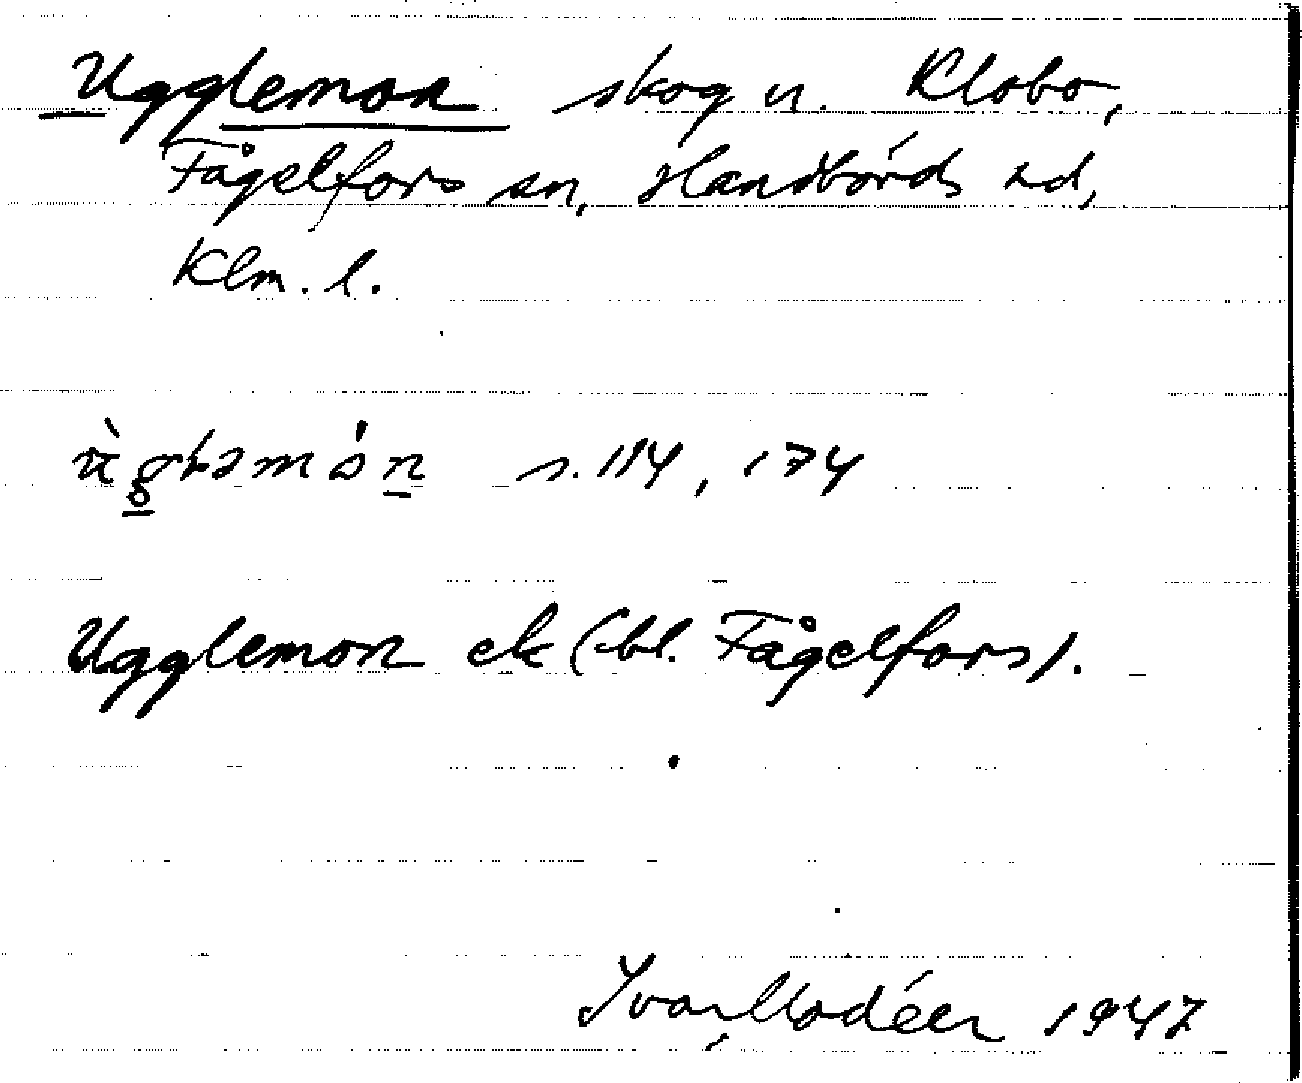 Ugglemon skog u. Klobo,
Fågelfors sn, Handbörds hd,
Klm. l.
s. 114, 174
Ugglemon ek (bl. Fågelfors).
Ivar Modéer 1947